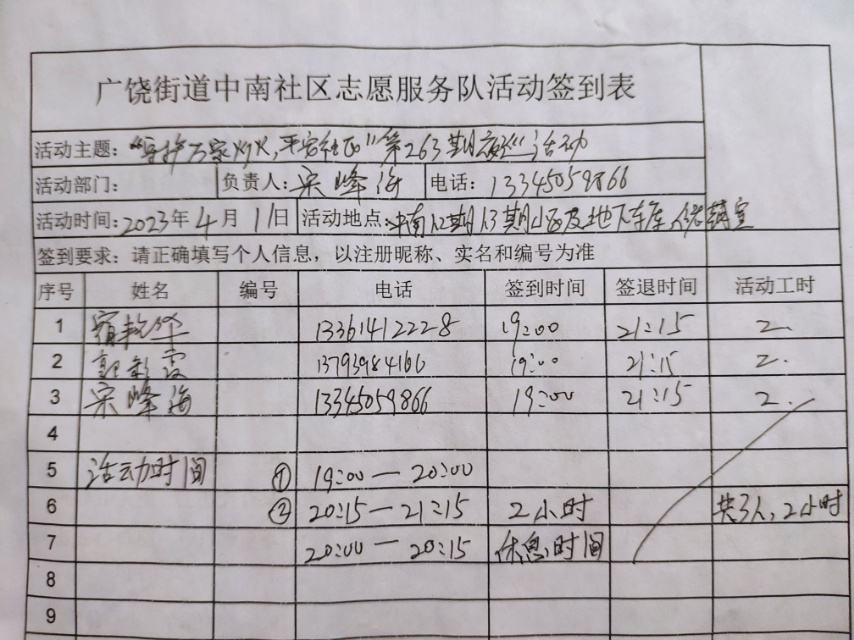 广饶街道中南社区志愿服务队活动签到表
活动主题：“守护万家灯火，平安社区”第263期夜巡活动
活动部门： 负责人：宋峰海 电话：13345059866
活动时间：2023年4月11日 活动地点：中南12期13期小区及地下车库、储藏室
签到要求：请正确填写个人信息，以注册昵称、实名和编号为准
序号 姓名 编号 电话 签到时间 签退时间 活动工时
1 13361412228 19:00 21:15 2.
2 郭彩霞 13793984166 19:00 21:15 2.
3 宋峰海 13345059866 19:00 21:15 2.
4
5 活动时间 ① 19:00—20:00
6 ② 20:15—21:15 2小时 共3人，2小时
7 20:00—20:15 休息时间
8
9